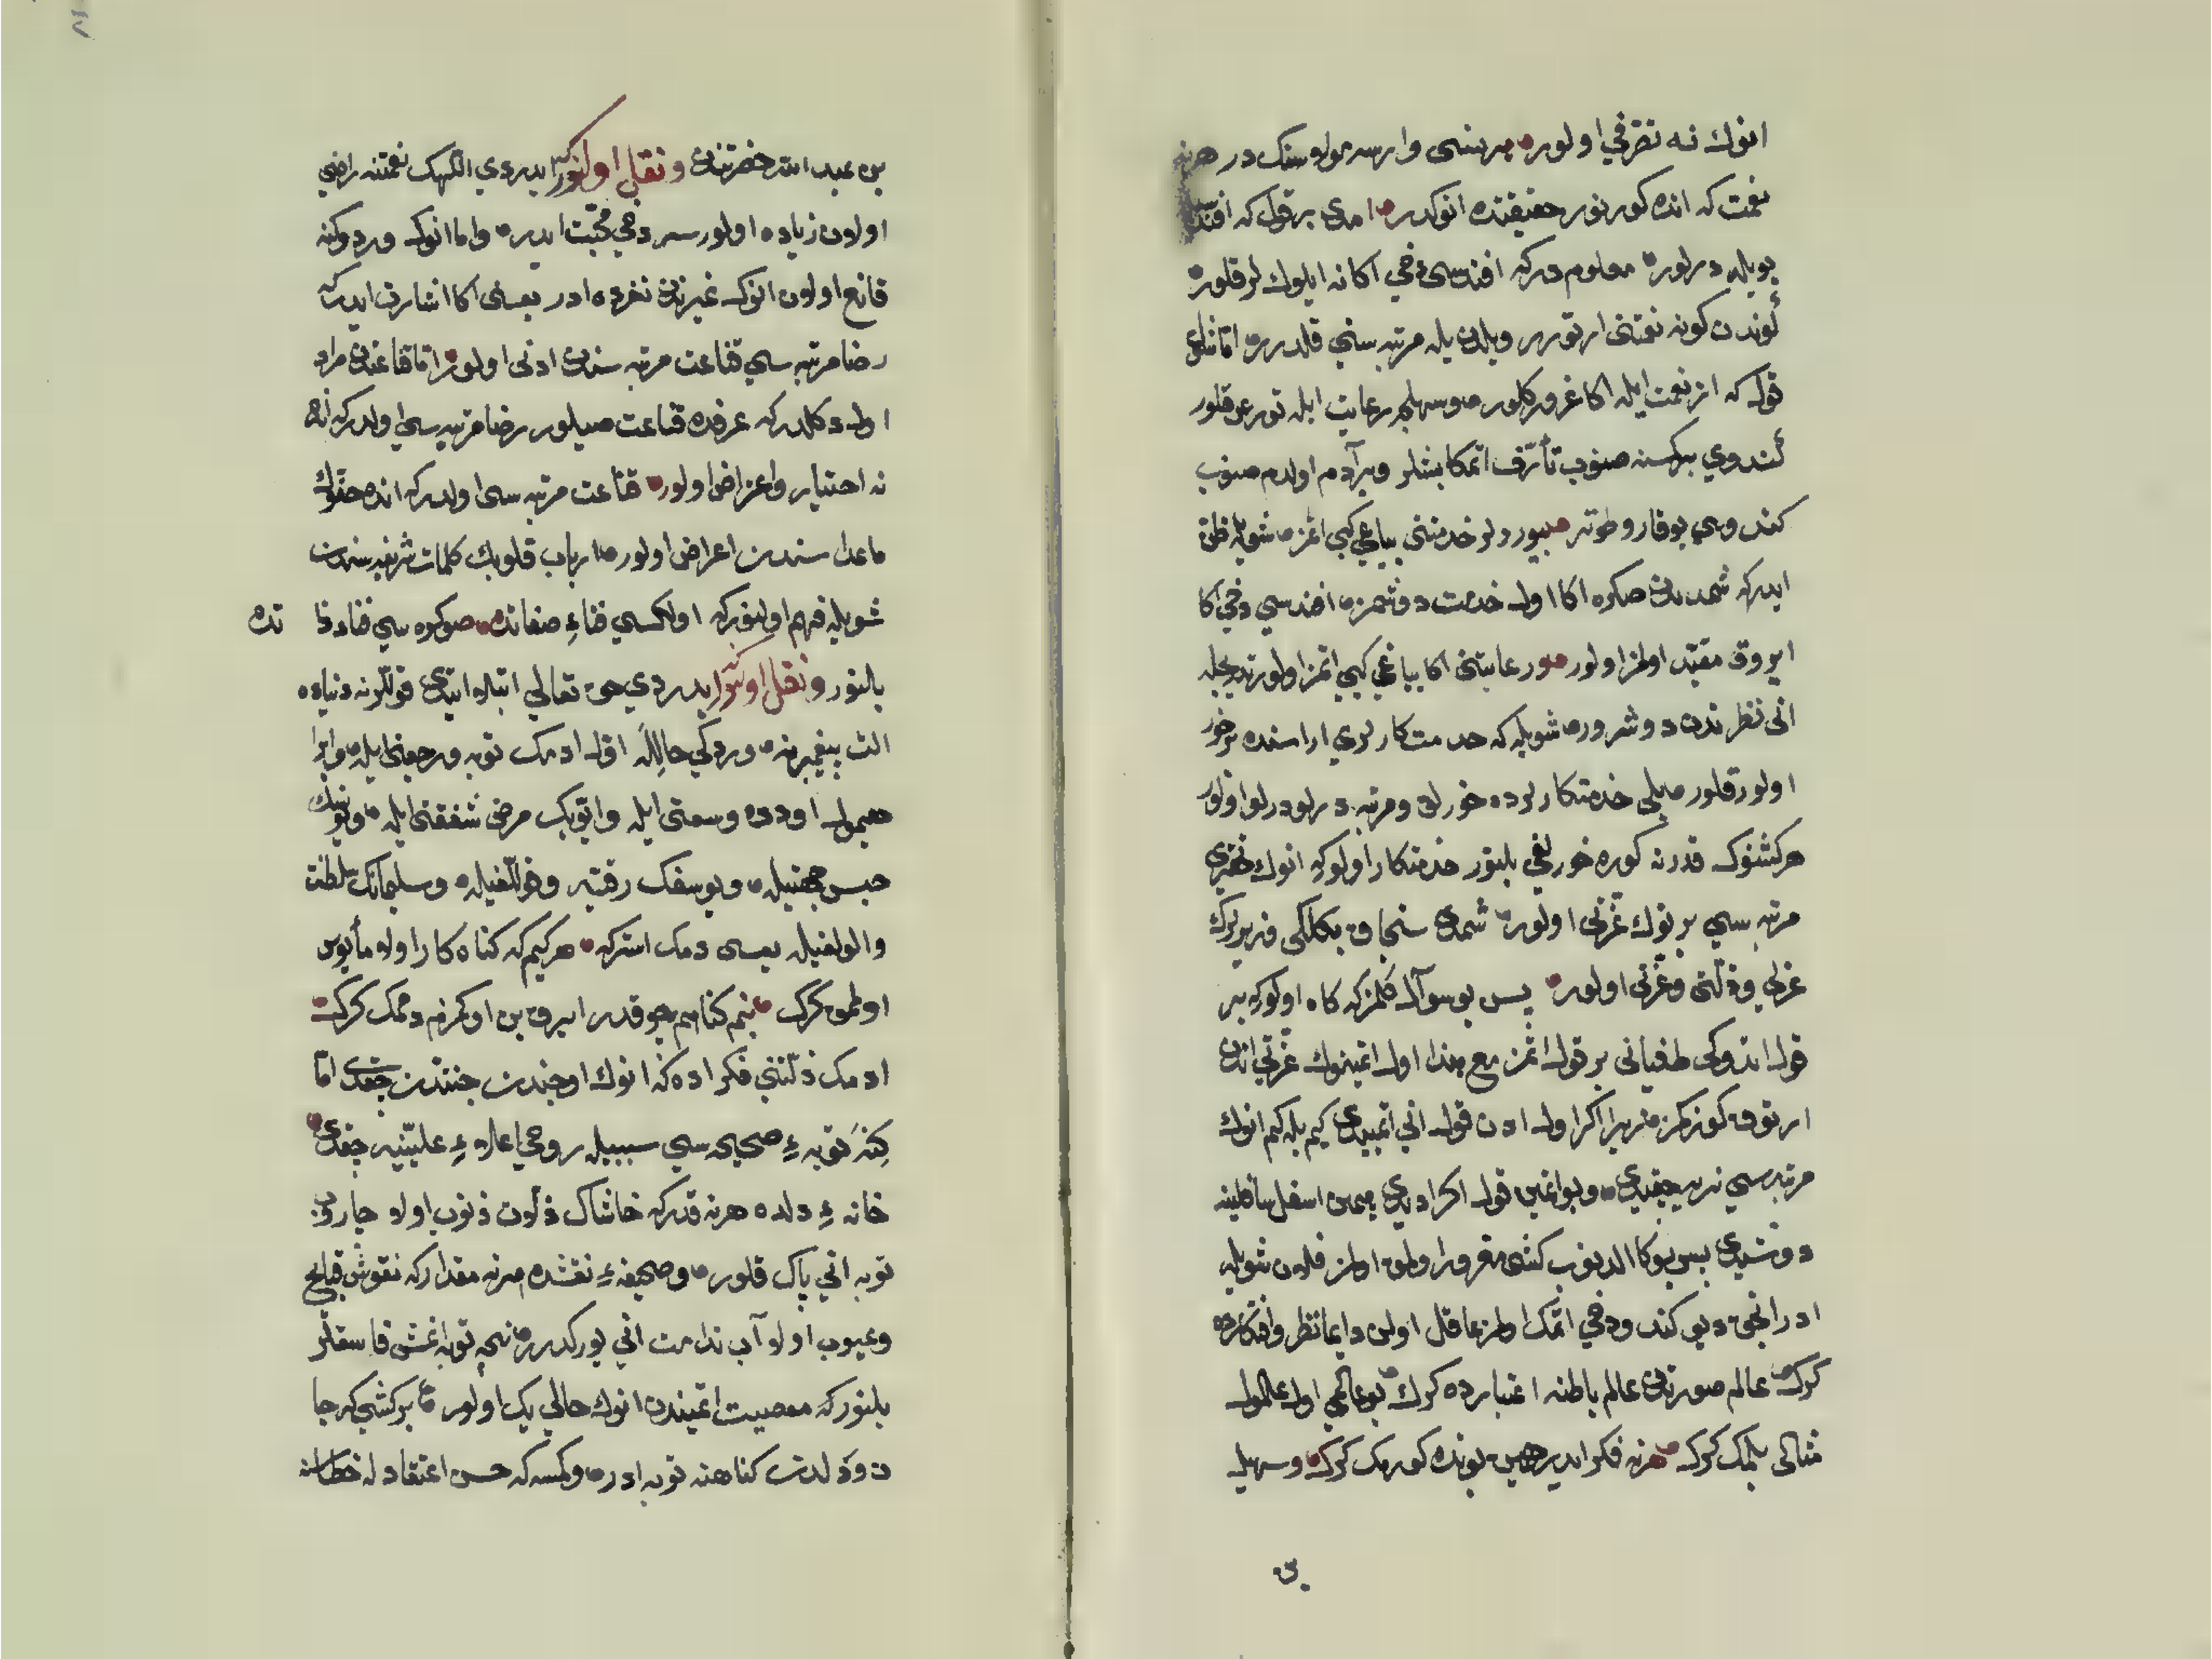 انوك نه تصرفي اولور هر نسى وارسه مولاسنك در هر نه
نعمت كه انده كورنور حقيقتده انوكدر امدى بر قول كه افندسى
بويله درلور معلوم دركه افندسى دخي اكا نه ايلوك لر قلور
كوندن كونه نعمتنى ارتورر ويلدن يله مرتبه سني قلدرر اما شلوى
قول كه از نعمت ايله اكا غرور كلور وسهلجه رعايت ايله تورعن قلور
كندوي بركسنه صنوب تأرف اتمكا بشلر وبر آدم اولدم صنوب
كندوي بوقار وطوتر بيورد لر خدمتنى بياغي كبي اتمز شويله ظن
ايدركه شمدن صكره اكا اول خدمت دوشمز افندسي دخي اكا
ايروق مقيد اولمز اولور ورعايتنى اكا بياغي كبي اتمز اولور تدريجله
انى نظرندن دوشرور شويله كه خدمتكارلري اراسنده بر خور
اولور قلور بلى خدمتكارلرده خورلق ومرتبه درلو درلو اولور
هر كشنوك قدرنه كوره خورلغي بلنور خدمتكار اولور كه انوك
مرتبه سي بر نوك عزتى اولور شمدى سنجاق بكلكى وزيرلرك
عزلي وذلتى وعزتى اولور پس بو سوآل كلمز كه كاه اولور كه بر
قول اتدوكى طغياني بر قول اتمز مع هذا اول اتمينوك عزتي اندن
ارتوق كوزكمز زيرا اكر اول ادن قول اني اتميدى كيم بله كيم انوك
مرتبه سي نريه چيقيدى وبو اتمين قول اكر اديدى يمين اسفل سافلينه
دوشيدى پس بوكا الدنوب كشى مغرور اولمق اولمز فلان شويله
ادر انجق ديو كندو دخي اتمك اولمز عاقل اولن دايما نظر وافتكارده
كرك عالم صورتدن عالم باطنه اعتبارده كرك بو عالمي اول عالموك
مثالى بلمك كرك هر نه فكر ايدرسن بونده كورمك كرك وسهيل
بن عبد الله حضرتندن ونقل اولنور كه ايدردي اللهك نعمتنه راضي
اولان زياده اولور سه دخي محبت ايدر واما انوك وردوكنه
قانع اولان انوك غيرندن نفرده ادر يعنى اكا اشارت ايدر كه
رضا مرتبه سي قناعت مرتبه سندن ادنى اولور اما قناعتدن مراد
اول دكلدركه عرفده قناعت صيلور رضا مرتبه سي اولدركه انده
نه اختيار واعراض اولور قناعت مرتبه سى اولدركه انده حقوك
ماعداسندن اعراض اولور ارباب قلوبك كلمات شريفه سندن
شويله فهم اولنور كه اولكسي فناء صفاتده صوكره سي فناء ذا تده
بلنور ونقل اولنور ايدردي حق تعالي ابتلا ايتدى قوللرنه دنياده
الت پيغمبرنه وردكي حاللَه اقل ادمك توبه ورجعتى ايله وابرا
هيموك اودده وسعتى ايله وايوبك مرض شفقتى ايله ويونسك
حبس محنتيله ويوسفك رقتيه وقوللغيله وسليمانك سلطنت
والولغيله يعنى دمك استركه هر كيم كه كناه كار اولو مأيوس
اولمق كرك بنم كناهم چوقدر ايروق بن اوكرم دممك كرك
ادمك ذلتنى فكر اده كه انوك اوجندن جنتدن چقدى اما
كِنَه توبه ءِ صحيحه سي سببيله روحي اعلاء عليينه چقدى
خانه ءِ دلده هر نه قدر كه خاشاك ذلات ذنوب اولو جاروب
توبه اني پاك قلور وصحيفه ءِ نفسده هر نه مقدار كه نقوش قبايح
وعيوب اولو آب ندامت اني يور كدرر نيجه توبه اتمش فاسقلر
بلنور كه معصيت اتميندن انوك حالي يك اولور بر كشي كه جا
ن ودلدن كناهنه توبه ادر وكسه كه حسن اعتقادله خطاسنه